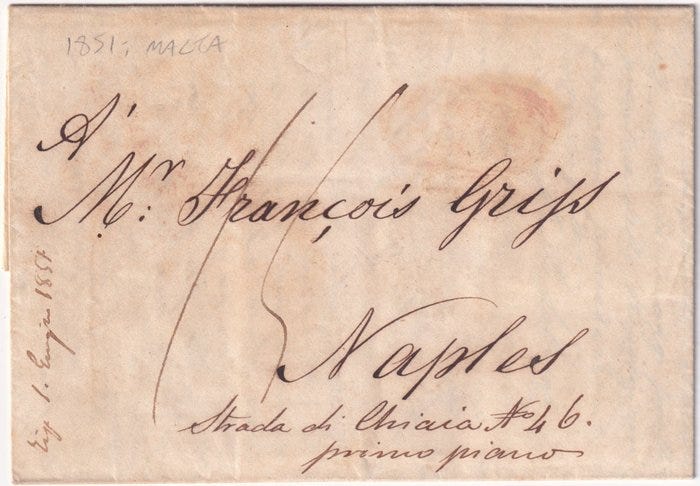 1851; MALTA
A'
Mr: François Griss
Naples
Strada di Chiaia No 46.
primo piano
15
1851